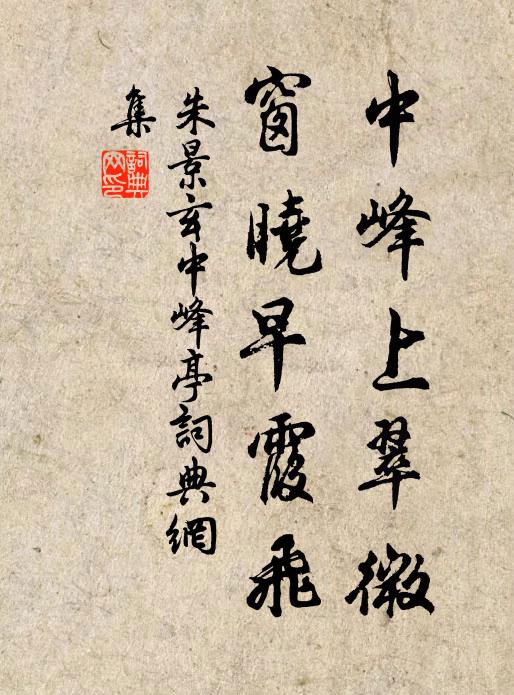 中峰上翠微
窗曉早霞飛
朱景玄中峰亭詞典網
集
詞典
网印